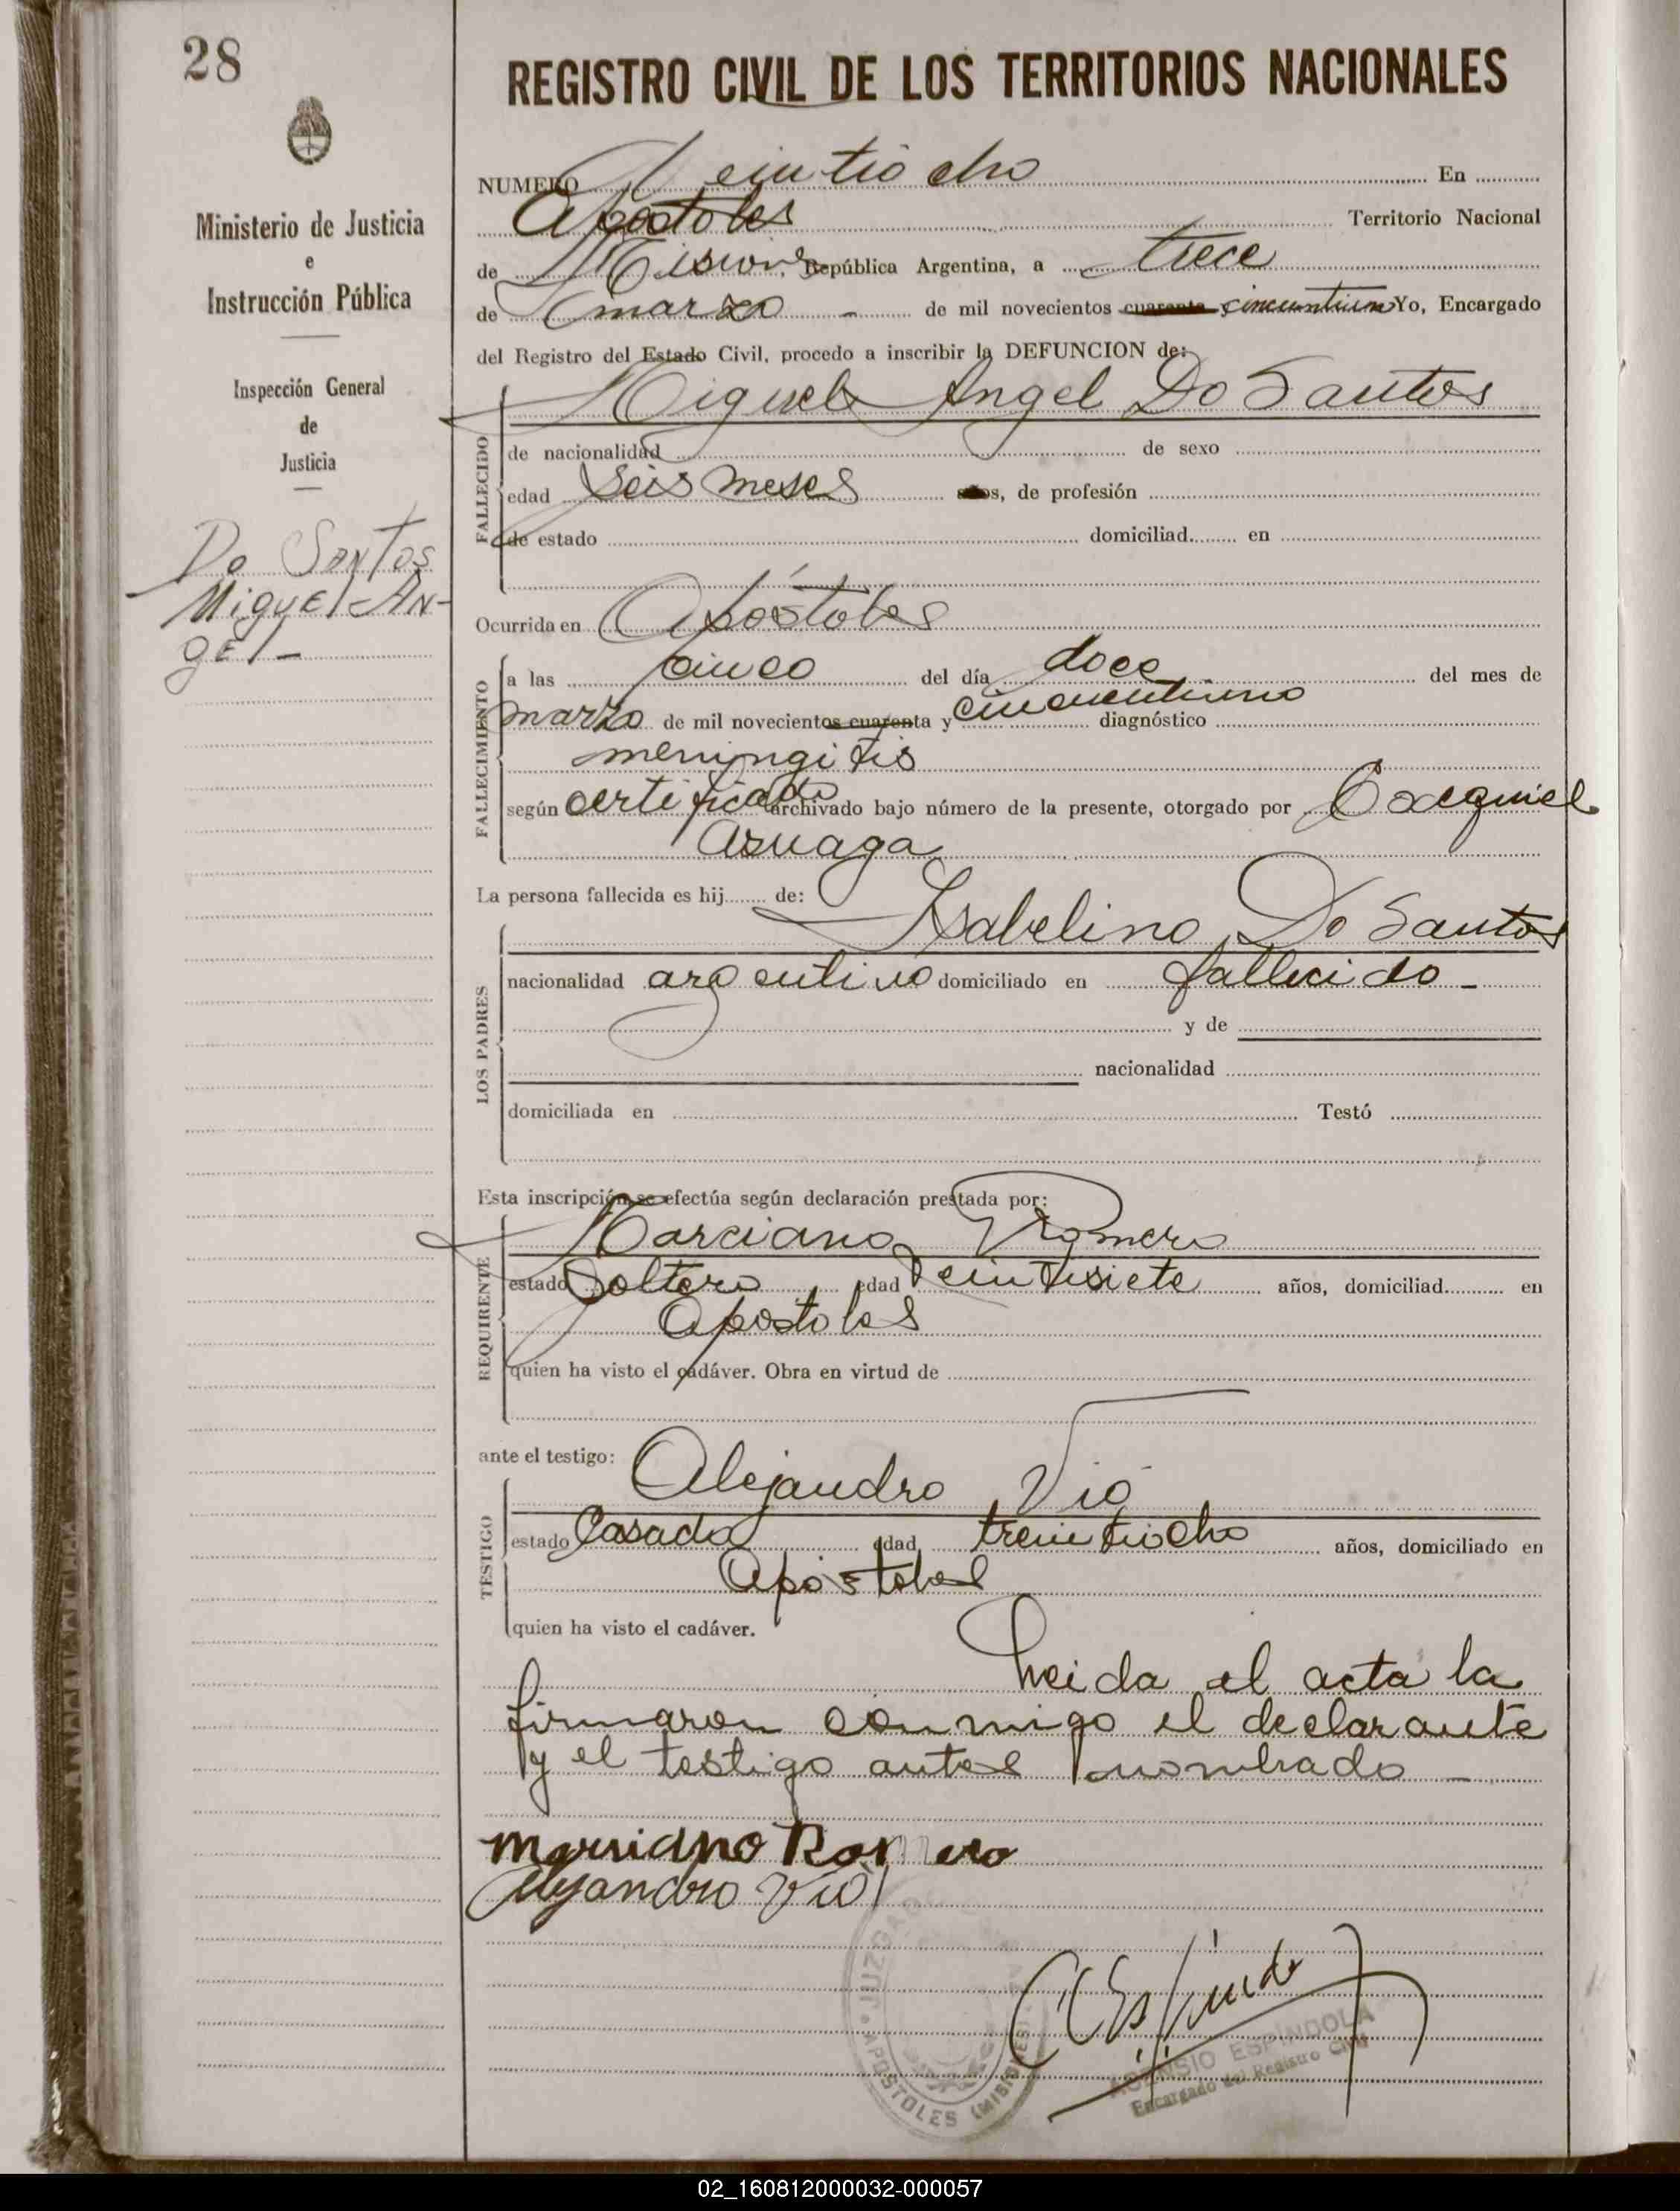 28
Ministerio de Justicia
e
Instrucción Pública
Inspección General
de
Justicia
Do Santos
Miguel An-
gel -
REGISTRO CIVIL DE LOS TERRITORIOS NACIONALES
NUMERO Veintiocho En
Apostoles Territorio Nacional
de Misiones, República Argentina, a trece
de marzo - de mil novecientos cuarenta cincuentiuno Yo, Encargado
del Registro del Estado Civil, procedo a inscribir la DEFUNCION de:
FALLECIDO
Miguel Angel Do Santos
de nacionalidad de sexo
edad seis meses años, de profesión
de estado domiciliad en
Ocurrida en Apóstoles
FALLECIMIENTO
a las cinco del día doce del mes de
marzo de mil novecientos cuarenta y cincuentiuno diagnóstico
meningitis
según certificado archivado bajo número de la presente, otorgado por Exequiel
Azuaga
La persona fallecida es hij de:
LOS PADRES
Isabelino Do Santos
nacionalidad argentino domiciliado en fallecido -
y de
nacionalidad
domiciliada en Testó
Esta inscripción se efectúa según declaración prestada por:
REQUIRENTE
Marciano Romero
estado Soltero edad veintisiete años, domiciliad en
Apostoles
quien ha visto el cadáver. Obra en virtud de
ante el testigo:
TESTIGO
Alejandro Vió
estado Casado edad treintiocho años, domiciliado en
Apóstoles
quien ha visto el cadáver.
Leida el acta la
firmaron conmigo el declarante
y el testigo antes nombrado -
Marciano Romero
Alejandro Vió
JUZGADO
APOSTOLES (MISIONES)
ASENSIO ESPINDOLA
Encargado del Registro Civil
02_160812000032-000057